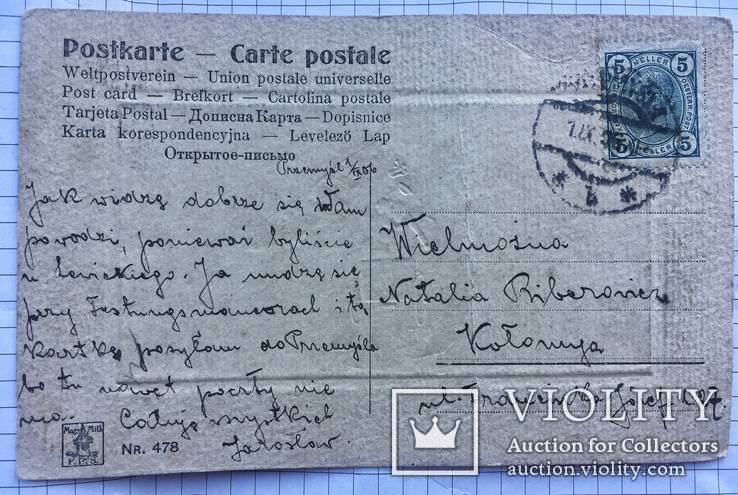 Postkarte — Carte postale
Weltpostverein — Union postale universelle
Post card — Brefkort — Cartolina postale
Tarjeta Postal — Дописна Карта — Dopisnice
Karta korespondencyjna — Levelező Lap
Открытое-письмо
Przemyśl 1/IX 06
Jak widzę dobrze się Wam
powodzi, ponieważ byliście
u Lewickiego. Ja nudzę się
przy Festungsmanövrach i tą
kartkę posyłam do Przemyśla
bo tu nawet poczty nie
ma. Całuję wszystkich
Jarosław.
Wielmożna
Natalia Riberowicz
Kołomyja
ul. Franciszka Józefa
5 HELLER 5
5 HELLER 5
1.IX
NR. 478
VIOLITY
Auction for Collectors
auction.violity.com